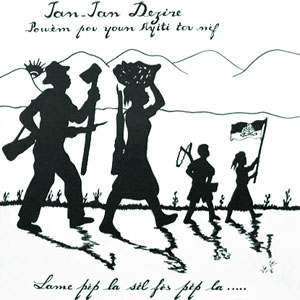 Jan-Jan Dezire
Powèm pou youn Ayiti tou nèf
Lame pèp la sèl fòs pèp la.....